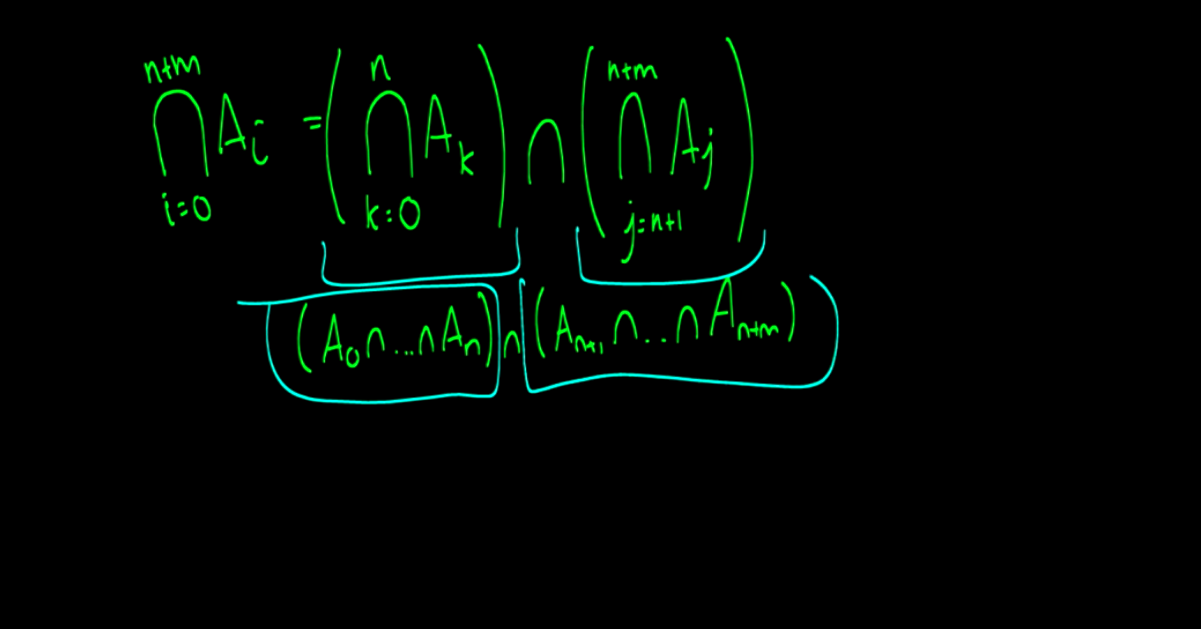 ⋂_{i=0}^{n+m} A_i = (⋂_{k=0}^{n} A_k) ∩ (⋂_{j=n+1}^{n+m} A_j)
(A_0 ∩ ... ∩ A_n) ∩ (A_{n+1} ∩ .. ∩ A_{n+m})